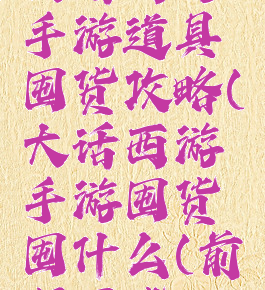 手游道具
囤货攻略(
大话西游
手游囤货
囤什么(前